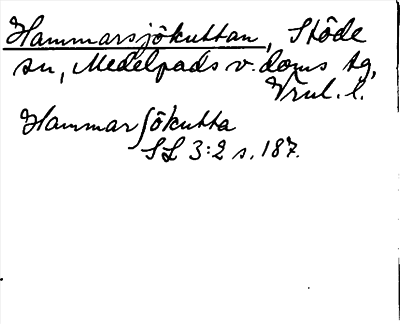 Hammarsjökuttan, Stöde
sn, Medelpads v. doms tg,
Vrnl. l.
Hammarsjökutta
SL 3:2 s. 187.